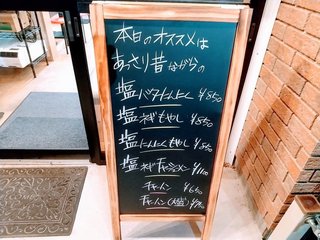 本日のオススメは
あっさり昔ながらの
塩バターにんにく ¥850
塩ネギもやし ¥850
塩にんにくもやし ¥850
塩ネギチャーシューメン
チャーハン ¥650
チャーハン(大盛)